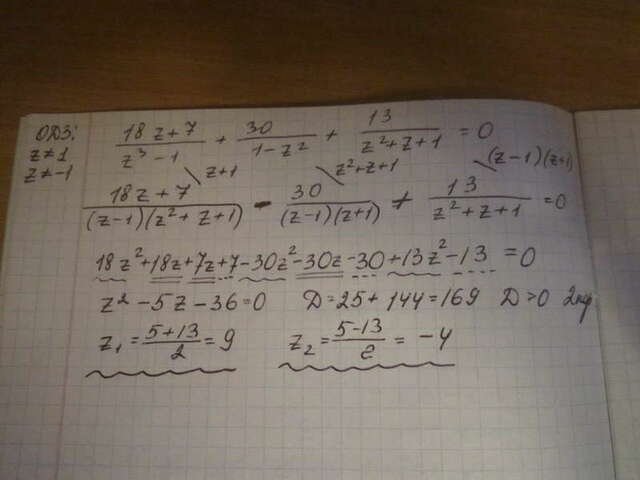 ОДЗ:
z≠1
z≠-1
(18z+7)/(z³-1) + 30/(1-z²) + 13/(z²+z+1) = 0
(18z+7)/((z-1)(z²+z+1)) \z+1 - 30/((z-1)(z+1)) \z²+z+1 + 13/(z²+z+1) \(z-1)(z+1) = 0
18z²+18z+7z+7-30z²-30z-30+13z²-13=0
z²-5z-36=0 D=25+144=169 D>0
z₁=(5+13)/2=9 z₂=(5-13)/2=-4